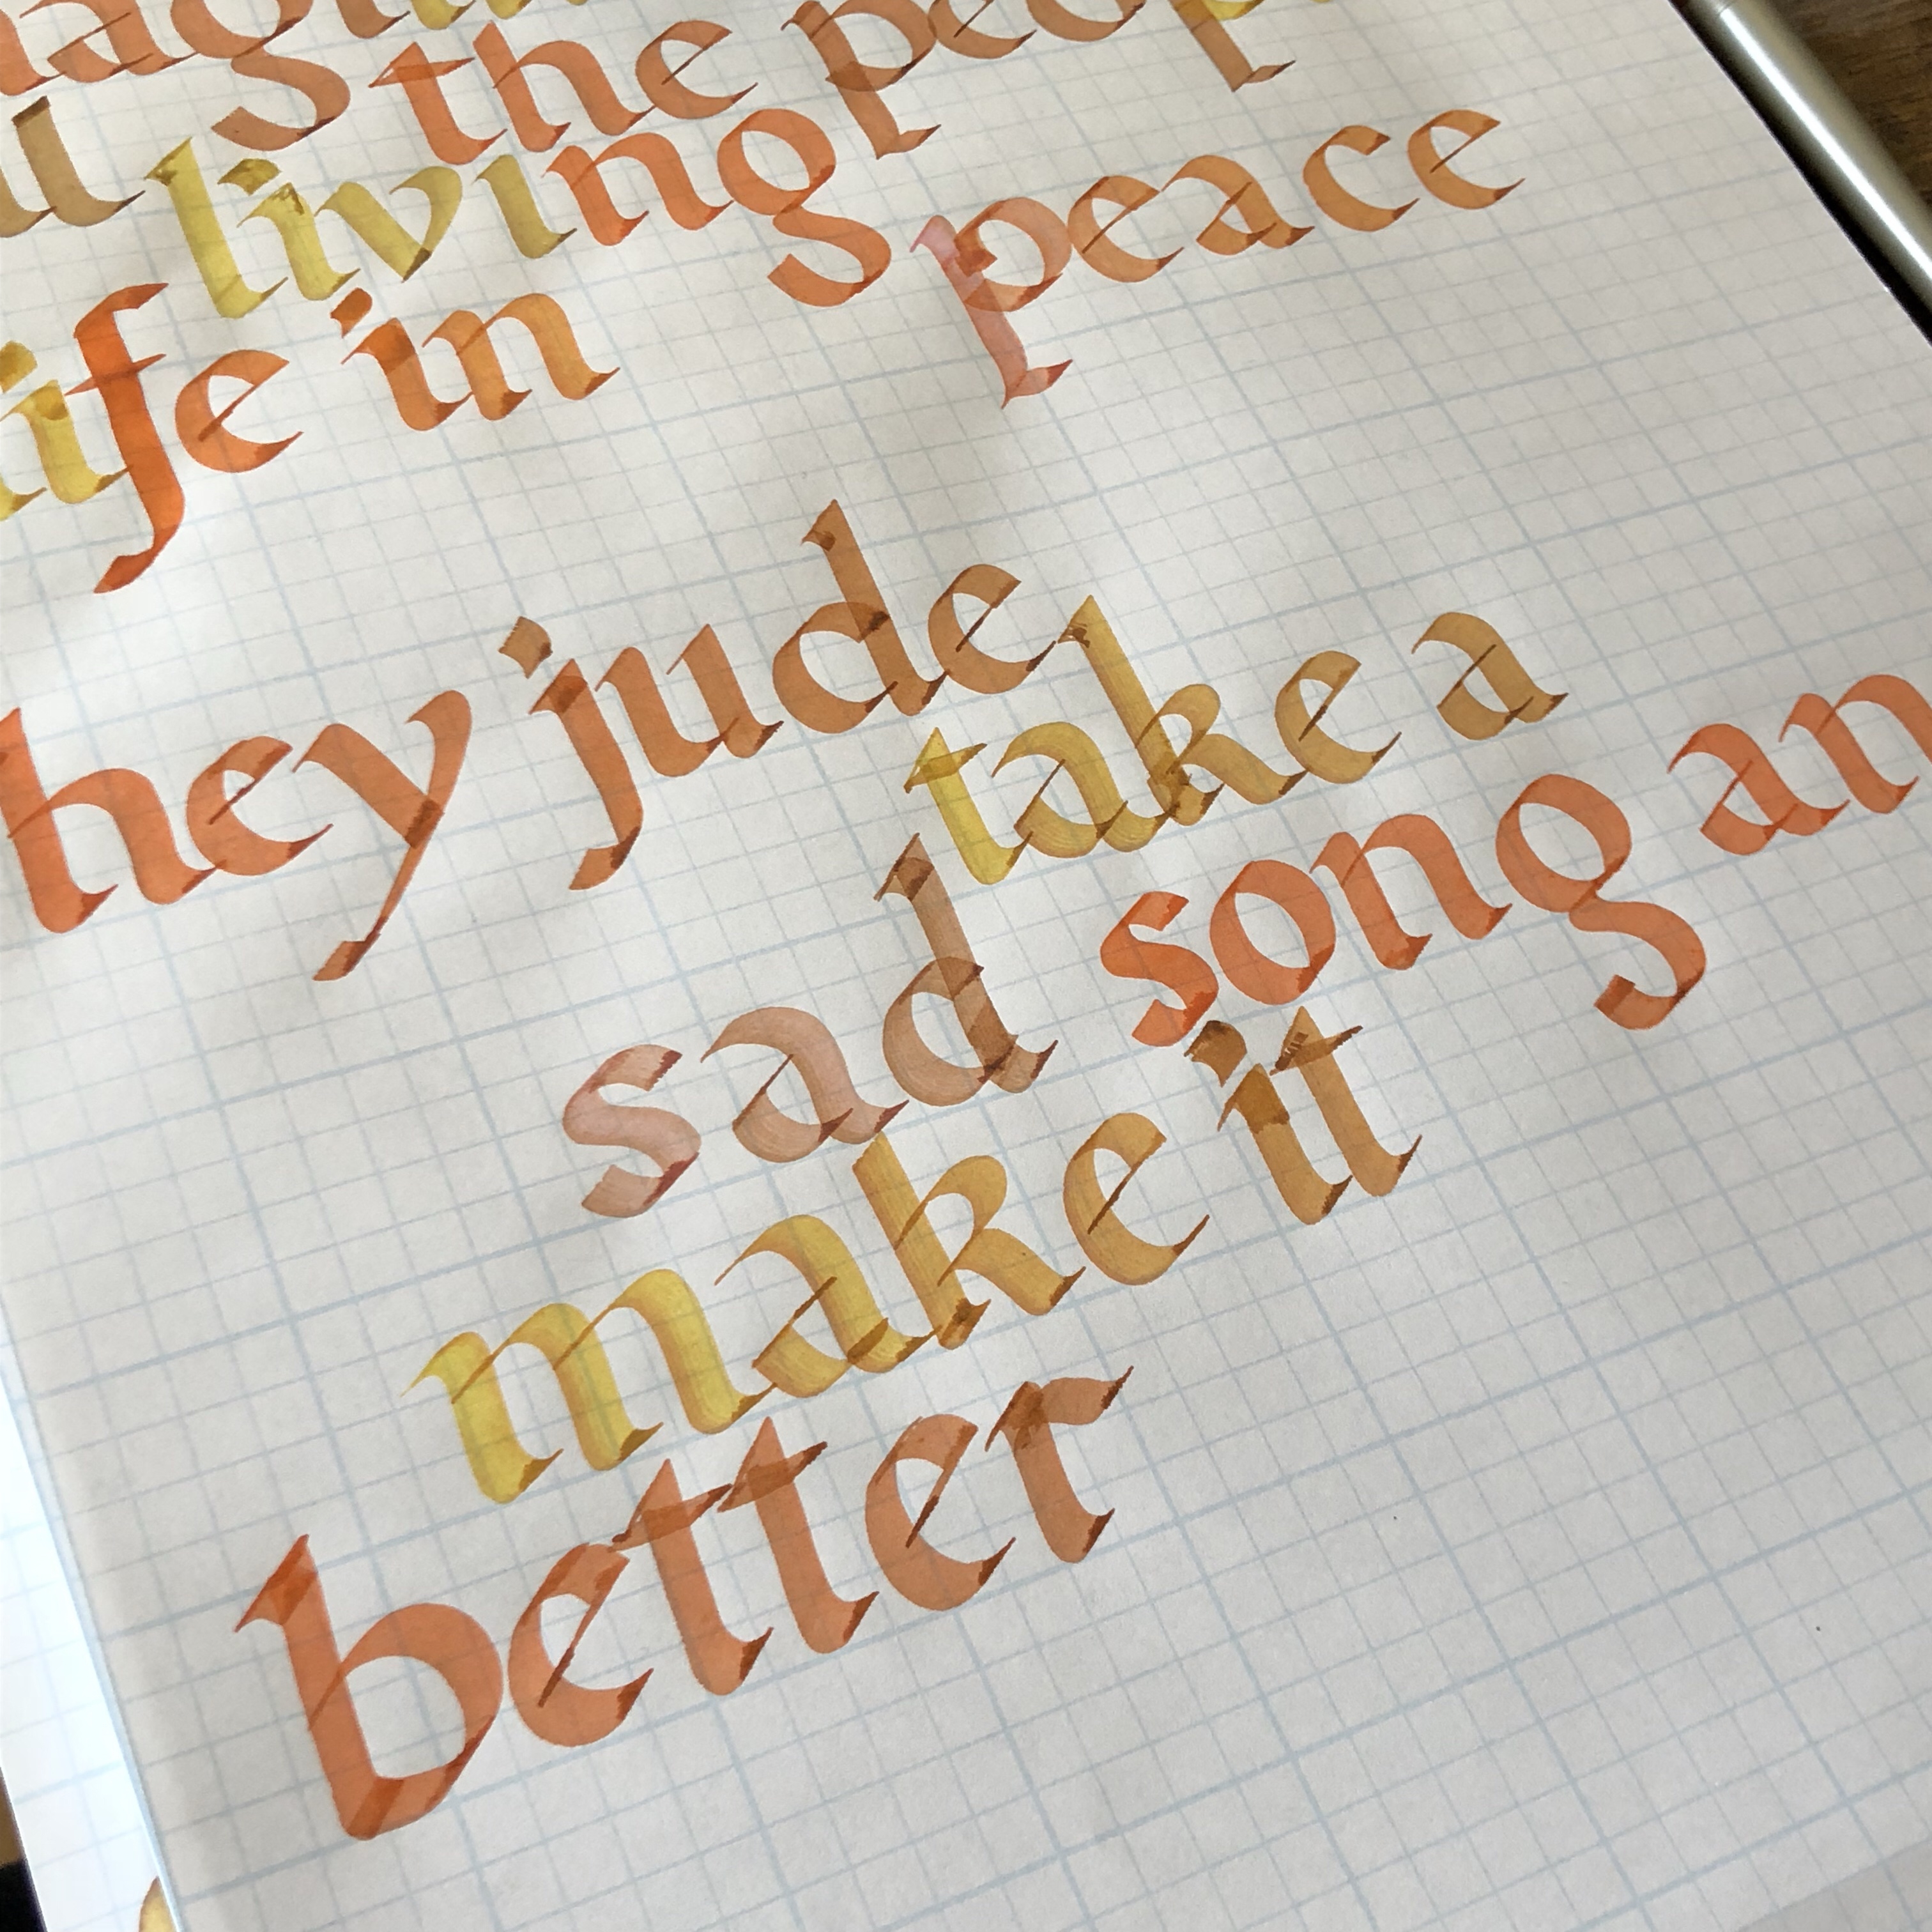 agin
l the peop
living
life in peace
hey jude
take a
sad song an
make it
better